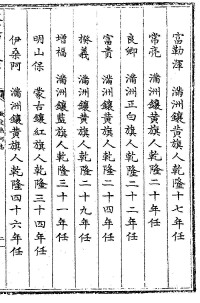 富勒渾　滿洲鑲黃旗人乾隆十七年任
常亮　滿洲鑲黃旗人乾隆二十年任
良卿　滿洲正白旗人乾隆二十二年任
富貴　滿洲鑲黃旗人乾隆二十四年任
揆義　滿洲鑲黃旗人乾隆二十九年任
增福　滿洲鑲藍旗人乾隆三十一年任
明山保　蒙古鑲紅旗人乾隆三十四年任
伊桑阿　滿洲鑲黃旗人乾隆四十六年任